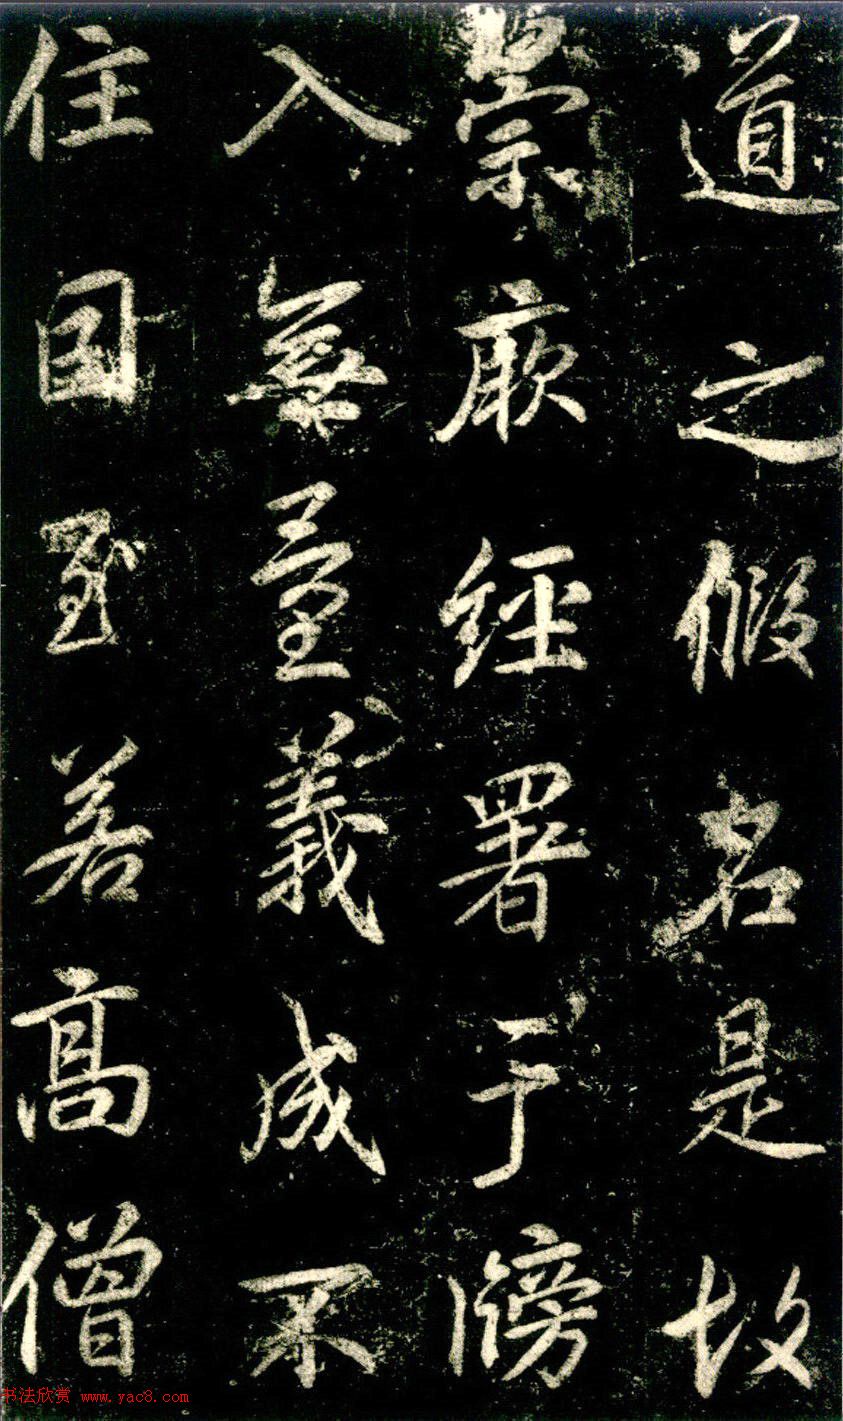 道之假名是故
崇厥經署于牓
入無量義成不
住国至若高僧
书法欣赏 www.yac8.com